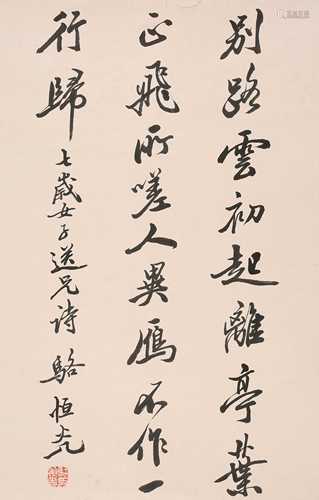 別路雲初起離亭葉
正飛所嗟人異雁不作一
行歸 七歲女子送兄诗 駱恒光